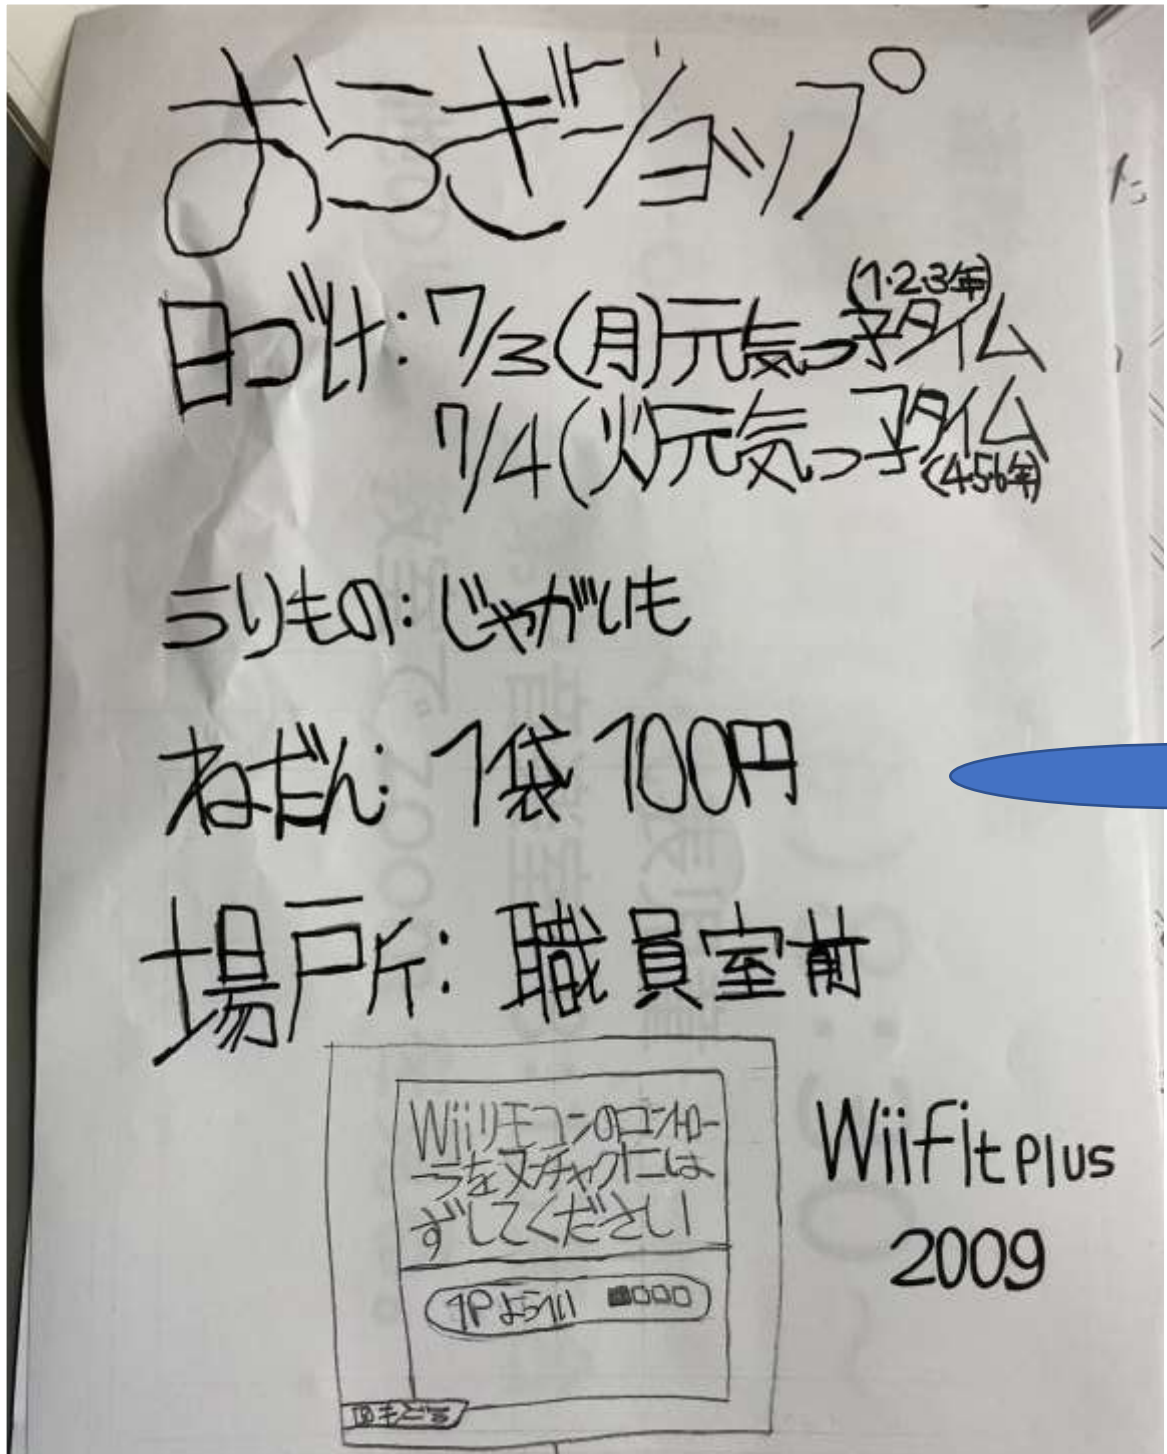 おうぎショップ
日づけ:7/3(月)元気っ子タイム
(1・2・3年)
7/4(火)元気っ子タイム
(4・5・6年)
うりもの:じゃがいも
ねだん:1袋 100円
場所:職員室前
Wiiリモコンのコントロー
ラを ヌンチャクトには
ずしてください
1P
もどる
WiiFit Plus
2009